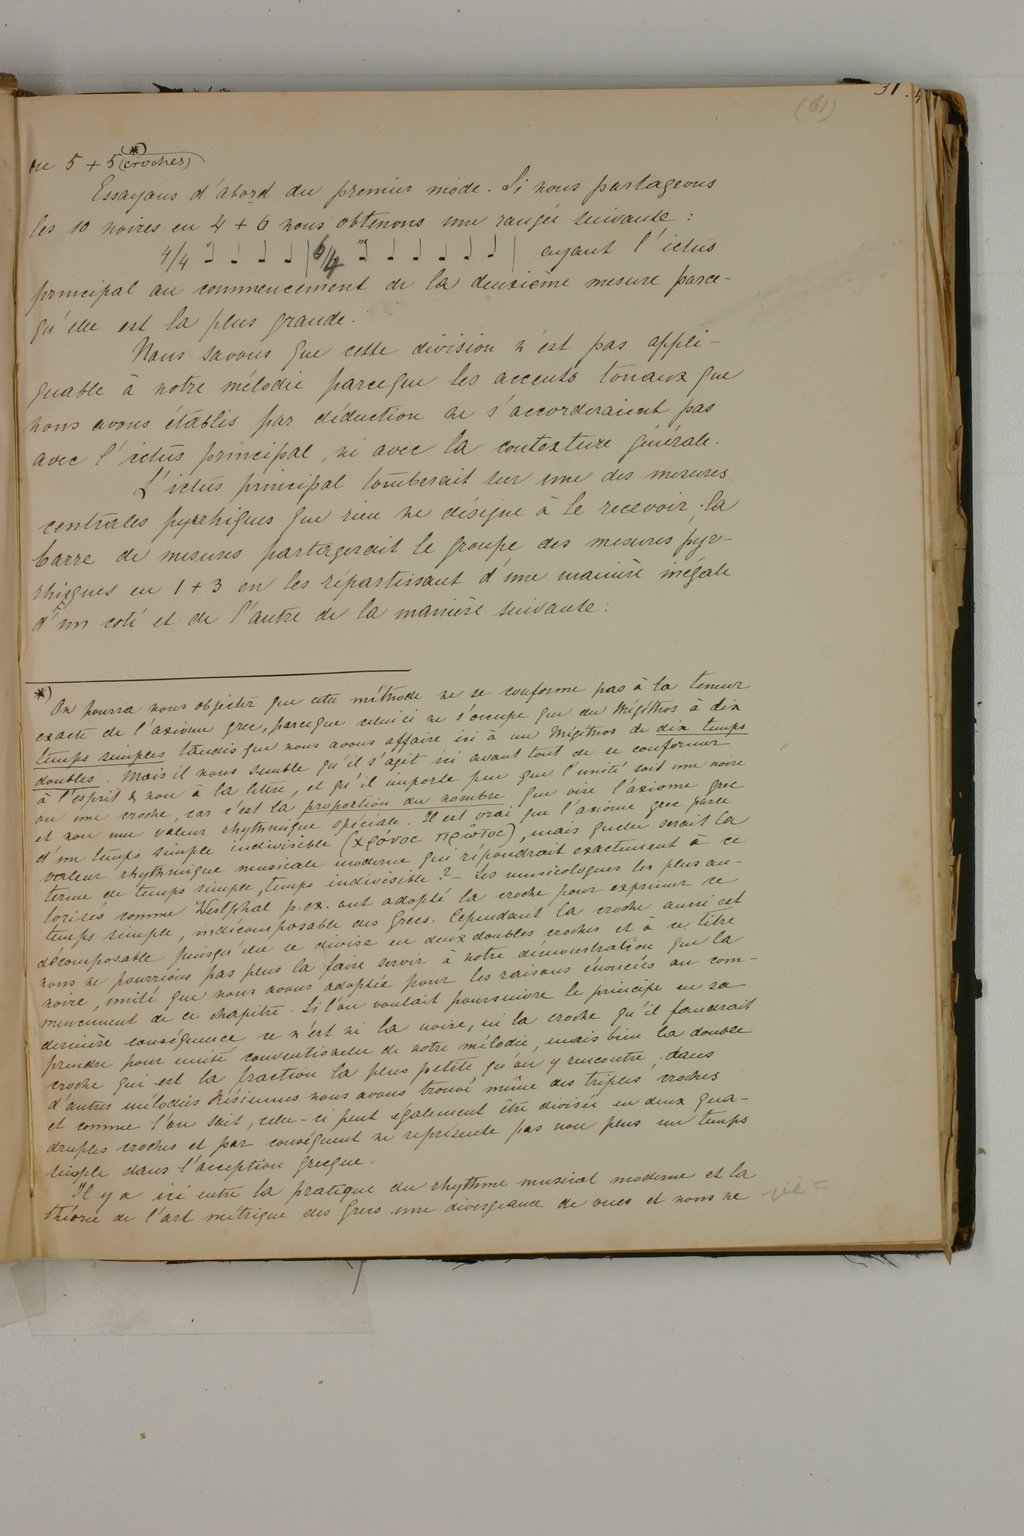 31.
(61)
ou 5 + 5 (croches) (*)
Essayons d'abord du premier mode. Si nous partageons
les 10 noires en 4 + 6 nous obtenons une rangée suivante :
4/4 ♩ ♩ ♩ ♩ | 6/4 ♩ ♩ ♩ ♩ ♩ ♩ | ayant l'ictus
principal au commencement de la deuxième mesure parce-
qu'elle est la plus grande.
Nous savons que cette division n'est pas appli-
quable à notre mélodie parceque les accents tonaux que
nous avons établis par déduction ne s'accorderaient pas
avec l'ictus principal, ni avec la contexture générale.
L'ictus principal tomberait sur une des mesures
centrales pyrrhiques que rien ne désigne à le recevoir ; la
barre de mesures partagerait le groupe des mesures pyr-
rhiques en 1 + 3 en les répartissant d'une manière inégale
d'un coté et de l'autre de la manière suivante :
*) On pourra nous objecter que cette méthode ne se conforme pas à la teneur
exacte de l'axiome grec, parceque celui ci ne s'occupe que du Mégéthos à dix
temps simples tandis que nous avons affaire ici à un Mégéthos de dix temps
doubles. Mais il nous semble qu'il s'agit ici avant tout de se conformer
à l'esprit & non à la lettre, et qu'il importe peu que l'unité soit une noire
ou une croche, car c'est la proportion du nombre que vise l'axiome grec
et non une valeur rhythmique spéciale. Il est vrai que l'axiome grec parle
d'un temps simple indivisible (χρόνος πρῶτος), mais quelle serait la
valeur rhythmique musicale moderne qui répondrait exactement à ce
terme de temps simple, temps indivisible ? – Les musicologues les plus au-
torisés comme Westphal p. ex. ont adopté la croche pour exprimer ce
temps simple, indécomposable des Grecs. Cependant la croche aussi est
décomposable puisqu'elle se divise en deux doubles croches et à ce titre
nous ne pourrions pas plus la faire servir à notre démonstration que la
noire, unité que nous avons adoptée pour les raisons énoncées au com-
mencement de ce chapitre. Si l'on voulait poursuivre le principe en sa
dernière conséquence ce n'est ni la noire, ni la croche qu'il faudrait
prendre pour unité conventionelle de notre mélodie, mais bien la double
croche qui est la fraction la plus petite qu'on y rencontre ; dans
d'autres mélodies Résiennes nous avons trouvé même des triples croches
et comme l'on sait, celle-ci peut également être divisée en deux qua-
druples croches et par conséquent ne représente pas non plus un temps
simple dans l'acception grecque.
Il y a ici entre la pratique du rhythme musical moderne et la
théorie de l'art métrique des Grecs une divergeance de vues et nous ne